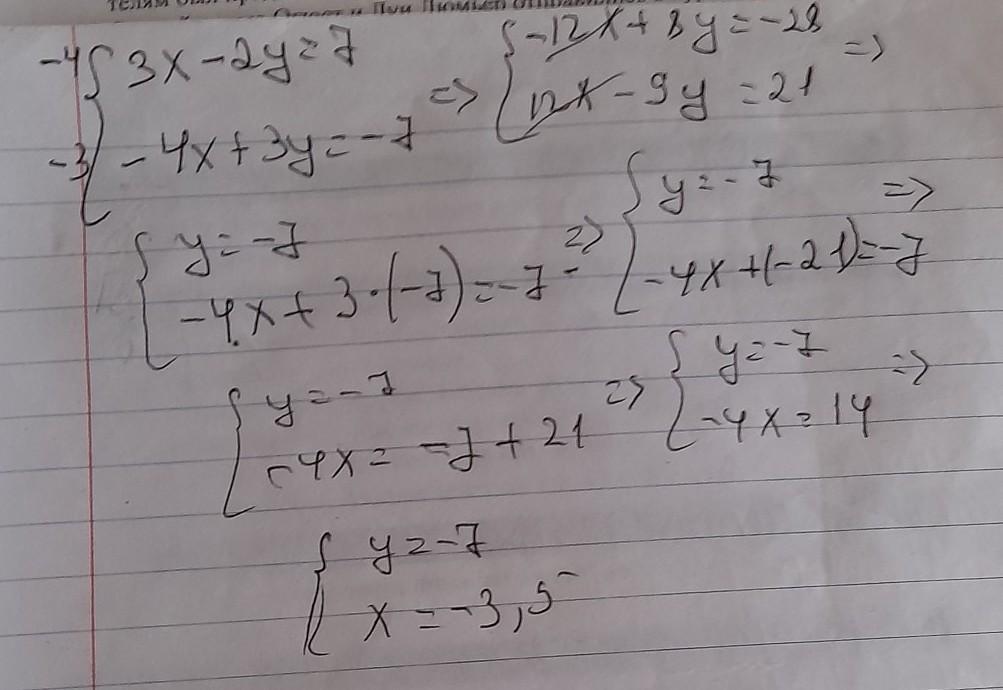 -4 { 3x - 2y = 7
-3 { -4x + 3y = -7 =>
{ -12x + 8y = -28
{ 12x - 9y = 21 =>
{ y = -7
{ -4x + 3 · (-7) = -7 =>
{ y = -7
{ -4x + (-21) = -7 =>
{ y = -7
{ -4x = -7 + 21 =>
{ y = -7
{ -4x = 14 =>
{ y = -7
{ x = -3,5